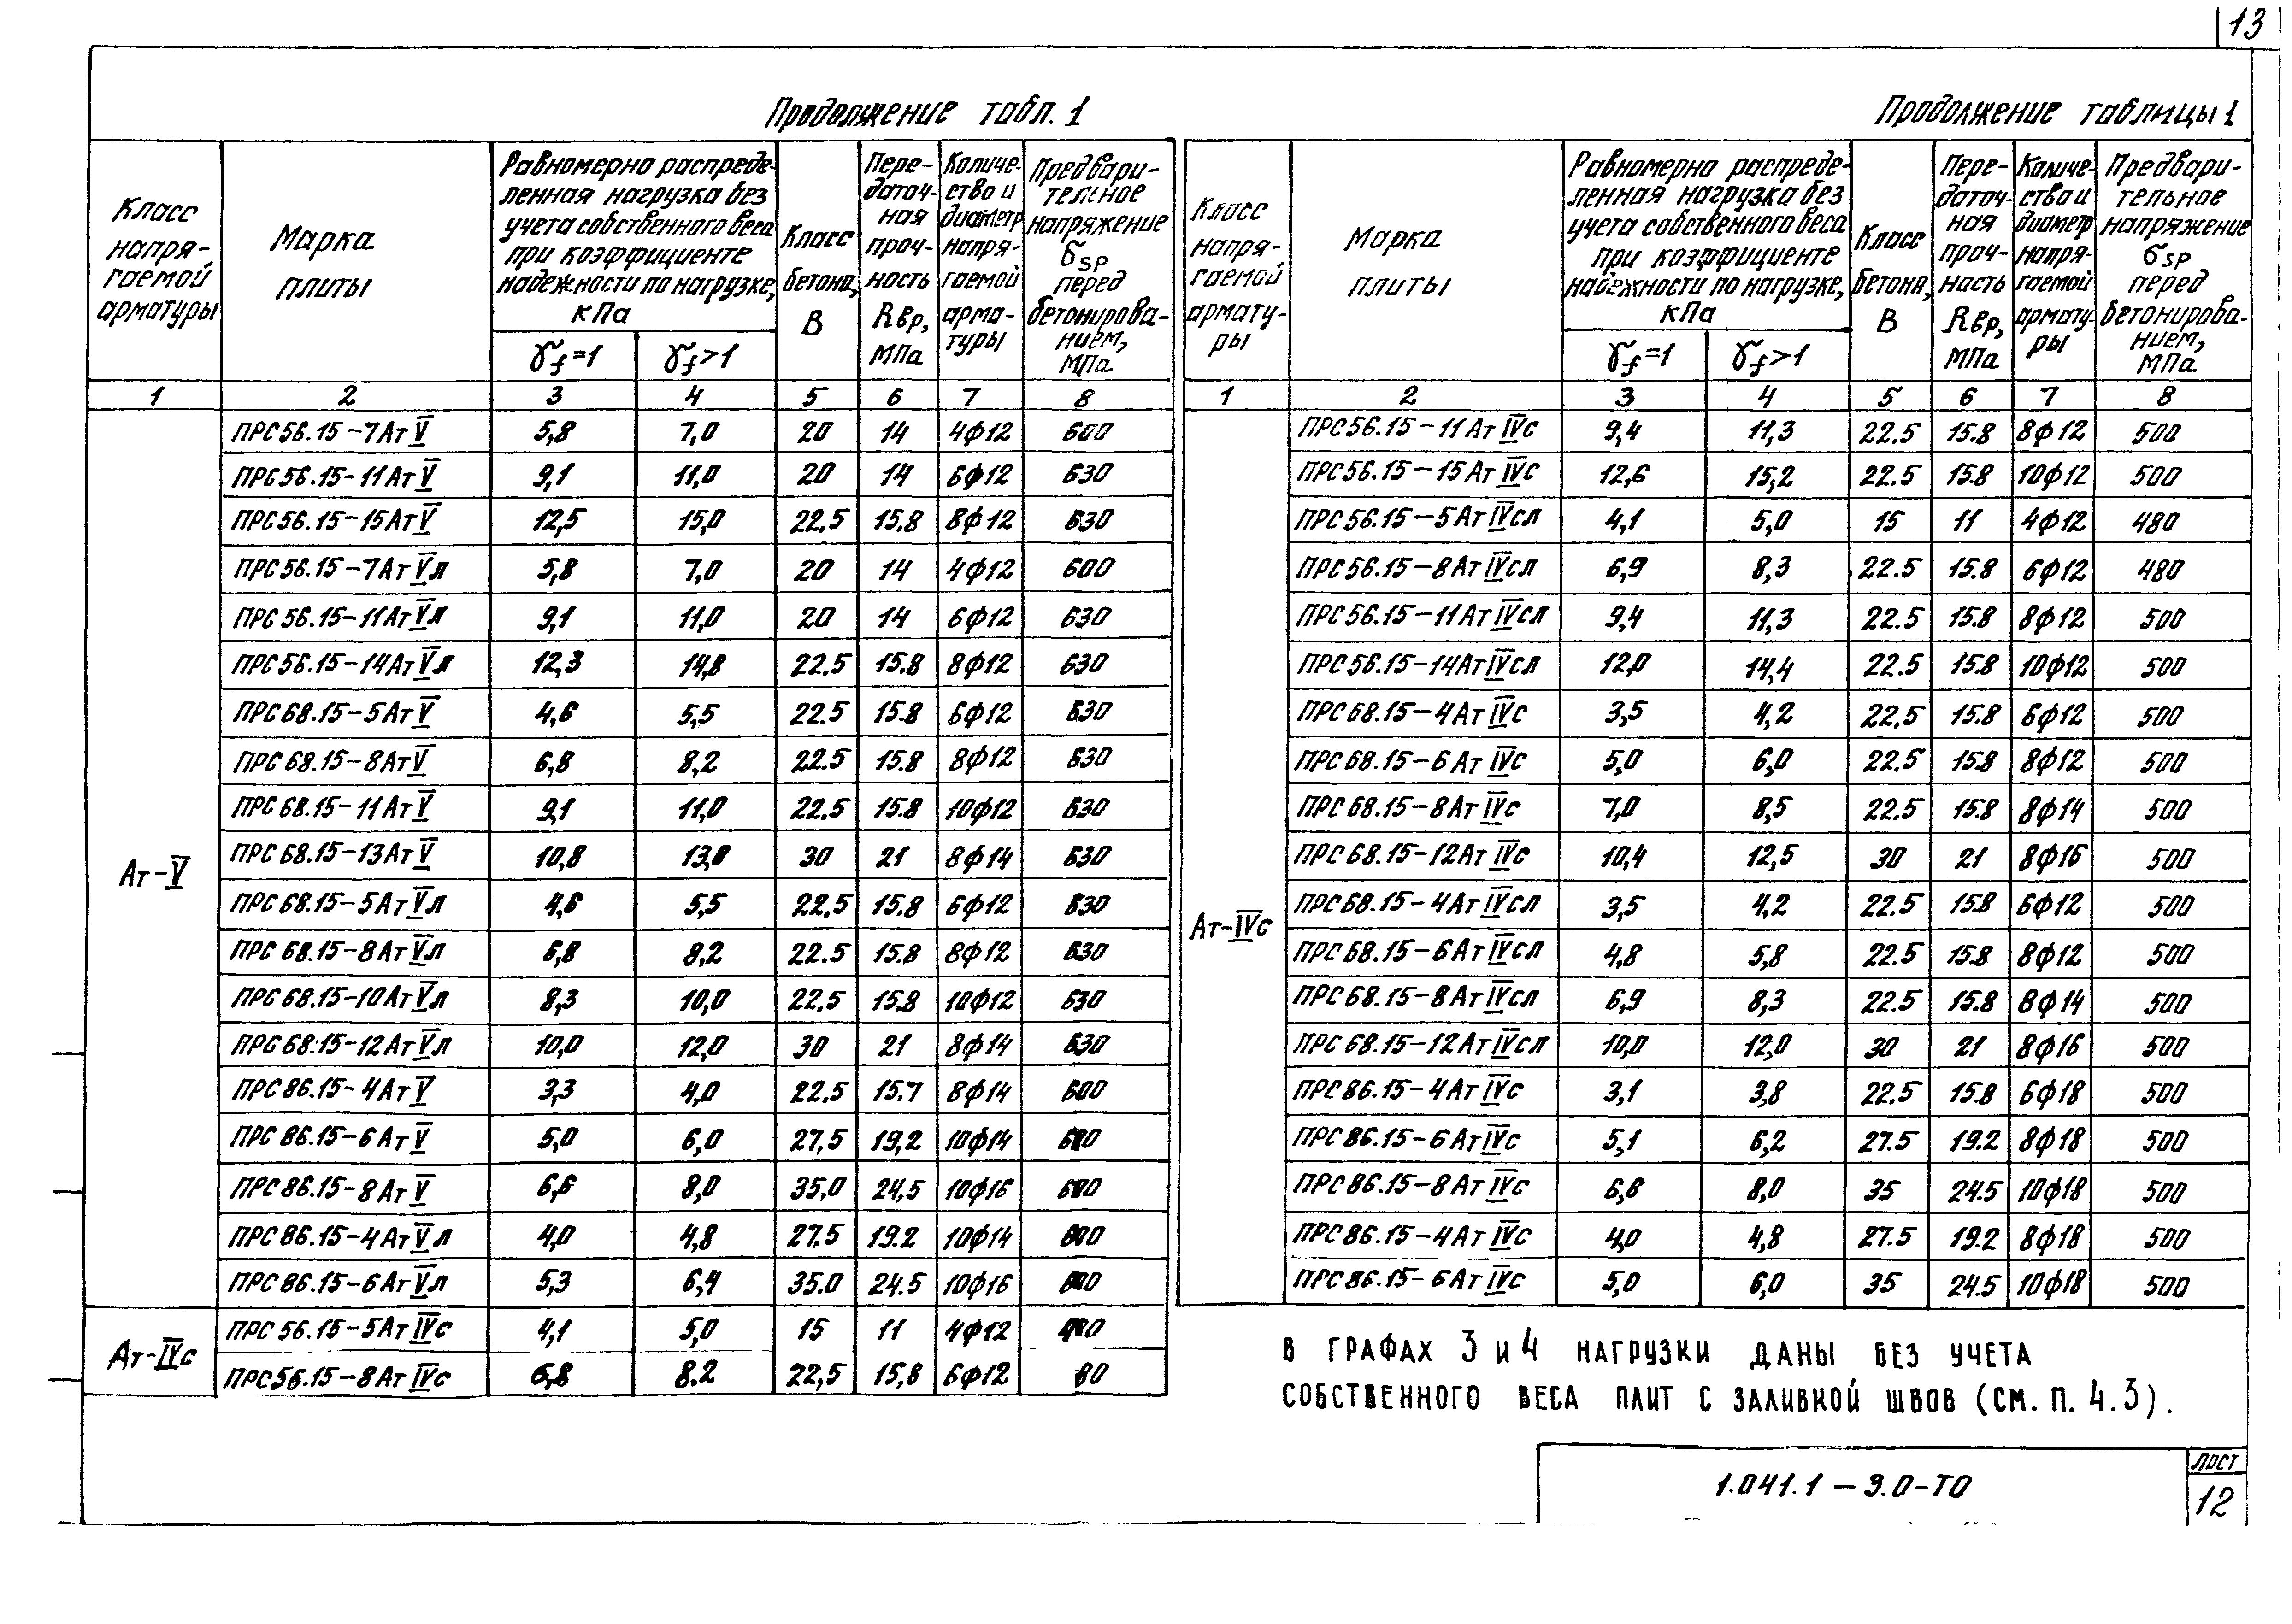 13
Продолжение табл. 1
Класс напря-гаемой арматуры | Марка плиты | Равномерно распреде-ленная нагрузка без учета собственного веса при коэффициенте надежности по нагрузке, кПа | Класс бетона, В | Пере-даточ-ная проч-ность Rвр, МПа | Количе-ство и диаметр напря-гаемой арма-туры | Предвари-тельное напряжение σsp перед бетонирова-нием, МПа
γf=1 | γf>1
1 | 2 | 3 | 4 | 5 | 6 | 7 | 8
Ат-V
ПРС56.15-7АтV | 5,8 | 7,0 | 20 | 14 | 4ф12 | 600
ПРС56.15-11АтV | 9,1 | 11,0 | 20 | 14 | 6ф12 | 630
ПРС56.15-15АтV | 12,5 | 15,0 | 22.5 | 15.8 | 8ф12 | 630
ПРС56.15-7АтVл | 5,8 | 7,0 | 20 | 14 | 4ф12 | 600
ПРС56.15-11АтVл | 9,1 | 11,0 | 20 | 14 | 6ф12 | 630
ПРС56.15-14АтVл | 12,3 | 14,8 | 22.5 | 15.8 | 8ф12 | 630
ПРС68.15-5АтV | 4,6 | 5,5 | 22.5 | 15.8 | 6ф12 | 630
ПРС68.15-8АтV | 6,8 | 8,2 | 22.5 | 15.8 | 8ф12 | 630
ПРС68.15-11АтV | 9,1 | 11,0 | 22.5 | 15.8 | 10ф12 | 630
ПРС68.15-13АтV | 10,8 | 13,0 | 30 | 21 | 8ф14 | 630
ПРС68.15-5АтVл | 4,6 | 5,5 | 22,5 | 15.8 | 6ф12 | 630
ПРС68.15-8АтVл | 6,8 | 8,2 | 22.5 | 15.8 | 8ф12 | 630
ПРС68.15-10АтVл | 8,3 | 10,0 | 22.5 | 15.8 | 10ф12 | 630
ПРС68.15-12АтVл | 10,0 | 12,0 | 30 | 21 | 8ф14 | 630
ПРС86.15-4АтV | 3,3 | 4,0 | 22.5 | 15.7 | 8ф14 | 600
ПРС86.15-6АтV | 5,0 | 6,0 | 27,5 | 19,2 | 10ф14
ПРС86.15-8АтV | 6,6 | 8,0 | 35,0 | 24,5 | 10ф16
ПРС86.15-4АтVл | 4,0 | 4,8 | 27.5 | 19.2 | 10ф14
ПРС86.15-6АтVл | 5,3 | 6,4 | 35.0 | 24.5 | 10ф16
Ат-IVс
ПРС56.15-5АтIVс | 4,1 | 5,0 | 15 | 11 | 4ф12
ПРС56.15-8АтIVс | 6,8 | 8.2 | 22,5 | 15,8 | 6ф12
Продолжение таблицы 1
Класс напря-гаемой армату-ры | Марка плиты | Равномерно распреде-ленная нагрузка без учета собственного веса при коэффициенте надежности по нагрузке, кПа | Класс бетона, В | Пере-даточ-ная проч-ность Rвр, МПа | Количе-ство и диаметр напря-гаемой армату-ры | Предвари-тельное напряжение σsp перед бетонирова-нием, МПа
γf=1 | γf>1
1 | 2 | 3 | 4 | 5 | 6 | 7 | 8
Ат-IVс
ПРС56.15-11АтIVс | 9,4 | 11,3 | 22.5 | 15.8 | 8ф12 | 500
ПРС56.15-15АтIVс | 12,6 | 15,2 | 22.5 | 15.8 | 10ф12 | 500
ПРС56.15-5АтIVсл | 4,1 | 5,0 | 15 | 11 | 4ф12 | 480
ПРС56.15-8АтIVсл | 6,9 | 8,3 | 22.5 | 15.8 | 6ф12 | 480
ПРС56.15-11АтIVсл | 9,4 | 11,3 | 22.5 | 15.8 | 8ф12 | 500
ПРС56.15-14АтIVсл | 12,0 | 14,4 | 22.5 | 15.8 | 10ф12 | 500
ПРС68.15-4АтIVс | 3,5 | 4,2 | 22,5 | 15.8 | 6ф12 | 500
ПРС68.15-6АтIVс | 5,0 | 6,0 | 22.5 | 15.8 | 8ф12 | 500
ПРС68.15-8АтIVс | 7,0 | 8,5 | 22.5 | 15.8 | 8ф14 | 500
ПРС68.15-12АтIVс | 10,4 | 12,5 | 30 | 21 | 8ф16 | 500
ПРС68.15-4АтIVсл | 3,5 | 4,2 | 22.5 | 15.8 | 6ф12 | 500
ПРС68.15-6АтIVсл | 4,8 | 5,8 | 22.5 | 15.8 | 8ф12 | 500
ПРС68.15-8АтIVсл | 6,9 | 8,3 | 22.5 | 15.8 | 8ф14 | 500
ПРС68.15-12АтIVсл | 10,0 | 12,0 | 30 | 21 | 8ф16 | 500
ПРС86.15-4АтIVс | 3,1 | 3,8 | 22.5 | 15.8 | 6ф18 | 500
ПРС86.15-6АтIVс | 5,1 | 6,2 | 27.5 | 19.2 | 8ф18 | 500
ПРС86.15-8АтIVс | 6,6 | 8,0 | 35 | 24.5 | 10ф18 | 500
ПРС86.15-4АтIVс | 4,0 | 4,8 | 27.5 | 19.2 | 8ф18 | 500
ПРС86.15-6АтIVс | 5,0 | 6,0 | 35 | 24.5 | 10ф18 | 500
В ГРАФАХ 3 и 4 НАГРУЗКИ ДАНЫ БЕЗ УЧЕТА
СОБСТВЕННОГО ВЕСА ПЛИТ С ЗАЛИВКОЙ ШВОВ (СМ. П. 4.3).
1.041.1-3.0-ТО
ЛИСТ
12